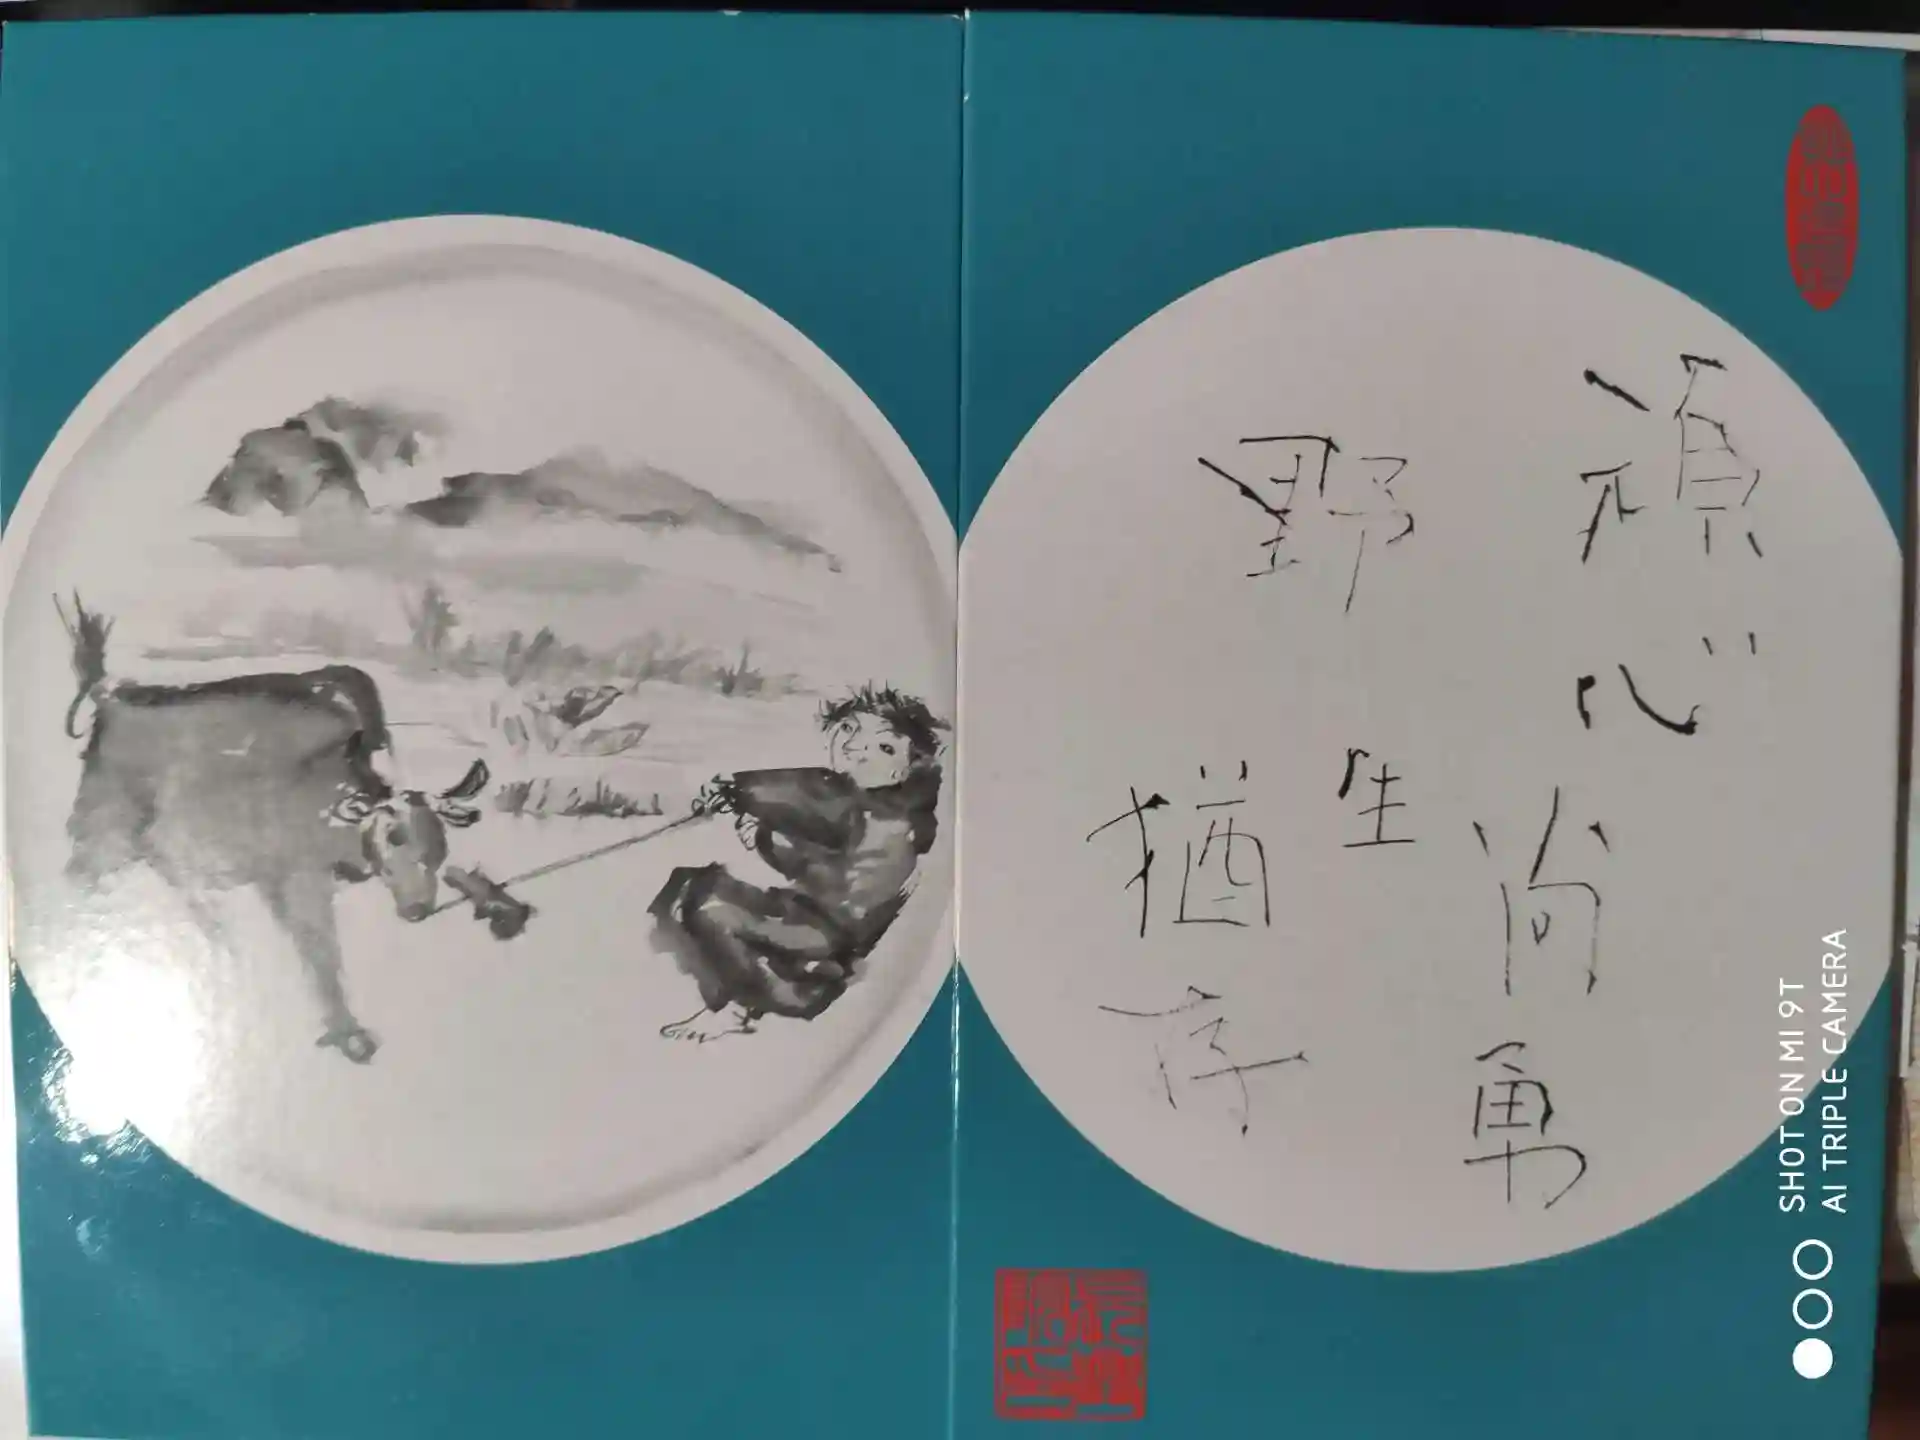 頑心尚勇
野生猶存
SHOT ON MI 9T
AI TRIPLE CAMERA